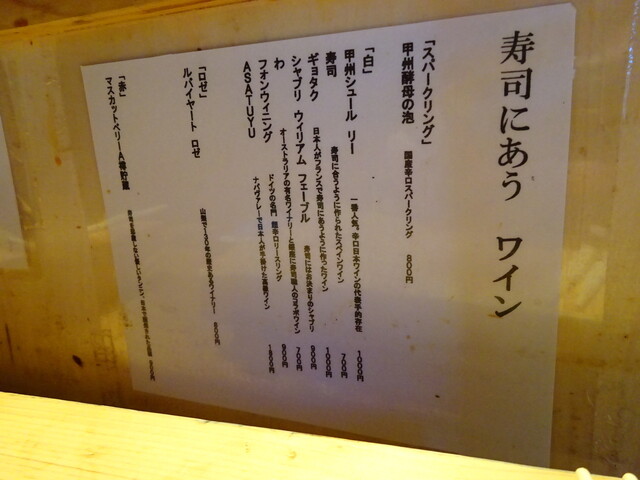 寿司にあう ワイン
「スパークリング」
甲州酵母の泡 国産辛口スパークリング 800円
「白」
甲州シュール リー 一番人気。辛口日本ワインの代表予的存在 1000円
寿司 寿司に合うように作られたスペインワイン 700円
ギョタク 日本人がフランスで寿司にあうように作ったワイン 1000円
シャブリ ウィリアム フェーブル 寿司にはお決まりのシャブリ 900円
わ オーストラリアの有名ワイナリーと銀座に寿司職人のコラボワイン 700円
フォンウィニング ドイツの名門 超辛口リースリング 900円
ASATUYU ナパヴァレーで日本人が手掛けた高級ワイン 1800円
「ロゼ」
ルバイヤート ロゼ 山梨で130年の歴史あるワイナリー 800円
「赤」
マスカットベリーA樽貯蔵 寿司を邪魔しない優しいタンニン、